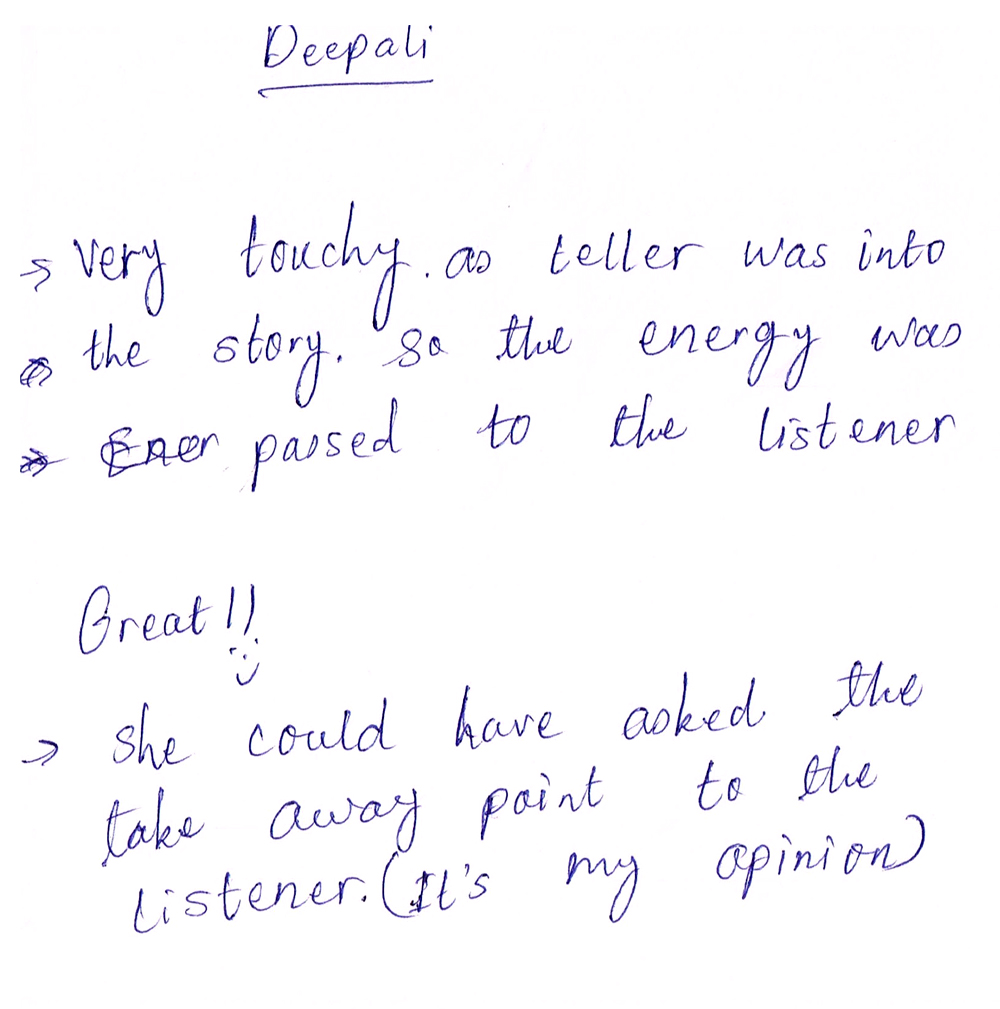 Deepali
→ Very touchy. as teller was into
the story. So the energy was
→ Ener passed to the listener
Great!!
:)
→ She could have asked the
take away point to the
listener. (It's my opinion)